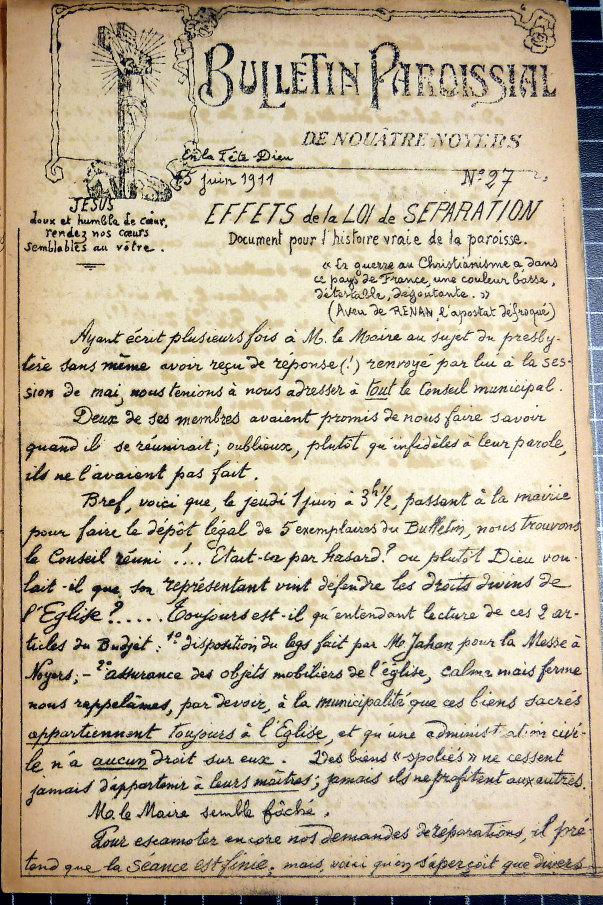 BULLETIN PAROISSIAL
DE NOUÂTRE-NOYERS
En la Fête-Dieu
15 juin 1911
No 27
JESUS
doux et humble de cœur,
rendez nos cœurs
semblables au vôtre.
EFFETS de la LOI de SEPARATION
Document pour l'histoire vraie de la paroisse.
« La guerre au Christianisme a dans
ce pays de France, une couleur basse,
détestable, dégoutante. »
(Aveu de RENAN, l'apostat défroqué)
Ayant écrit plusieurs fois à M. le Maire au sujet du presby-
tère sans même avoir reçu de réponse (!) renvoyé par lui à la ses-
sion de mai, nous tenions à nous adresser à tout le Conseil municipal.
Deux de ses membres avaient promis de nous faire savoir
quand il se réunirait; oublieux, plutôt qu'infidèles à leur parole,
ils ne l'avaient pas fait.
Bref, voici que, le jeudi 1 juin à 3h½, passant à la mairie
pour faire le dépôt légal de 5 exemplaires du Bulletin, nous trouvons
le Conseil réuni !... Etait-ce par hasard? ou plutôt Dieu vou-
lait-il que son représentant vint défendre les droits divins de
l'Eglise?..... Toujours est-il qu'entendant lecture de ces 2 ar-
ticles du Budjet: 1º disposition du legs fait par Mr Jahan pour la Messe à
Noyers; - 2º assurance des objets mobiliers de l'église, calme mais ferme
nous rappelâmes, par devoir, à la municipalité que ces biens sacrés
appartiennent toujours à l'Eglise, et qu'une administration civi-
le n'a aucun droit sur eux. Des biens « spoliés » ne cessent
jamais d'appartenir à leurs maîtres; jamais ils ne profitent aux autres.
M. le Maire semble fâché.
Pour escamoter encore nos demandes de réparations, il pré-
tend que la séance est finie; mais, voici qu'on s'aperçoit que divers